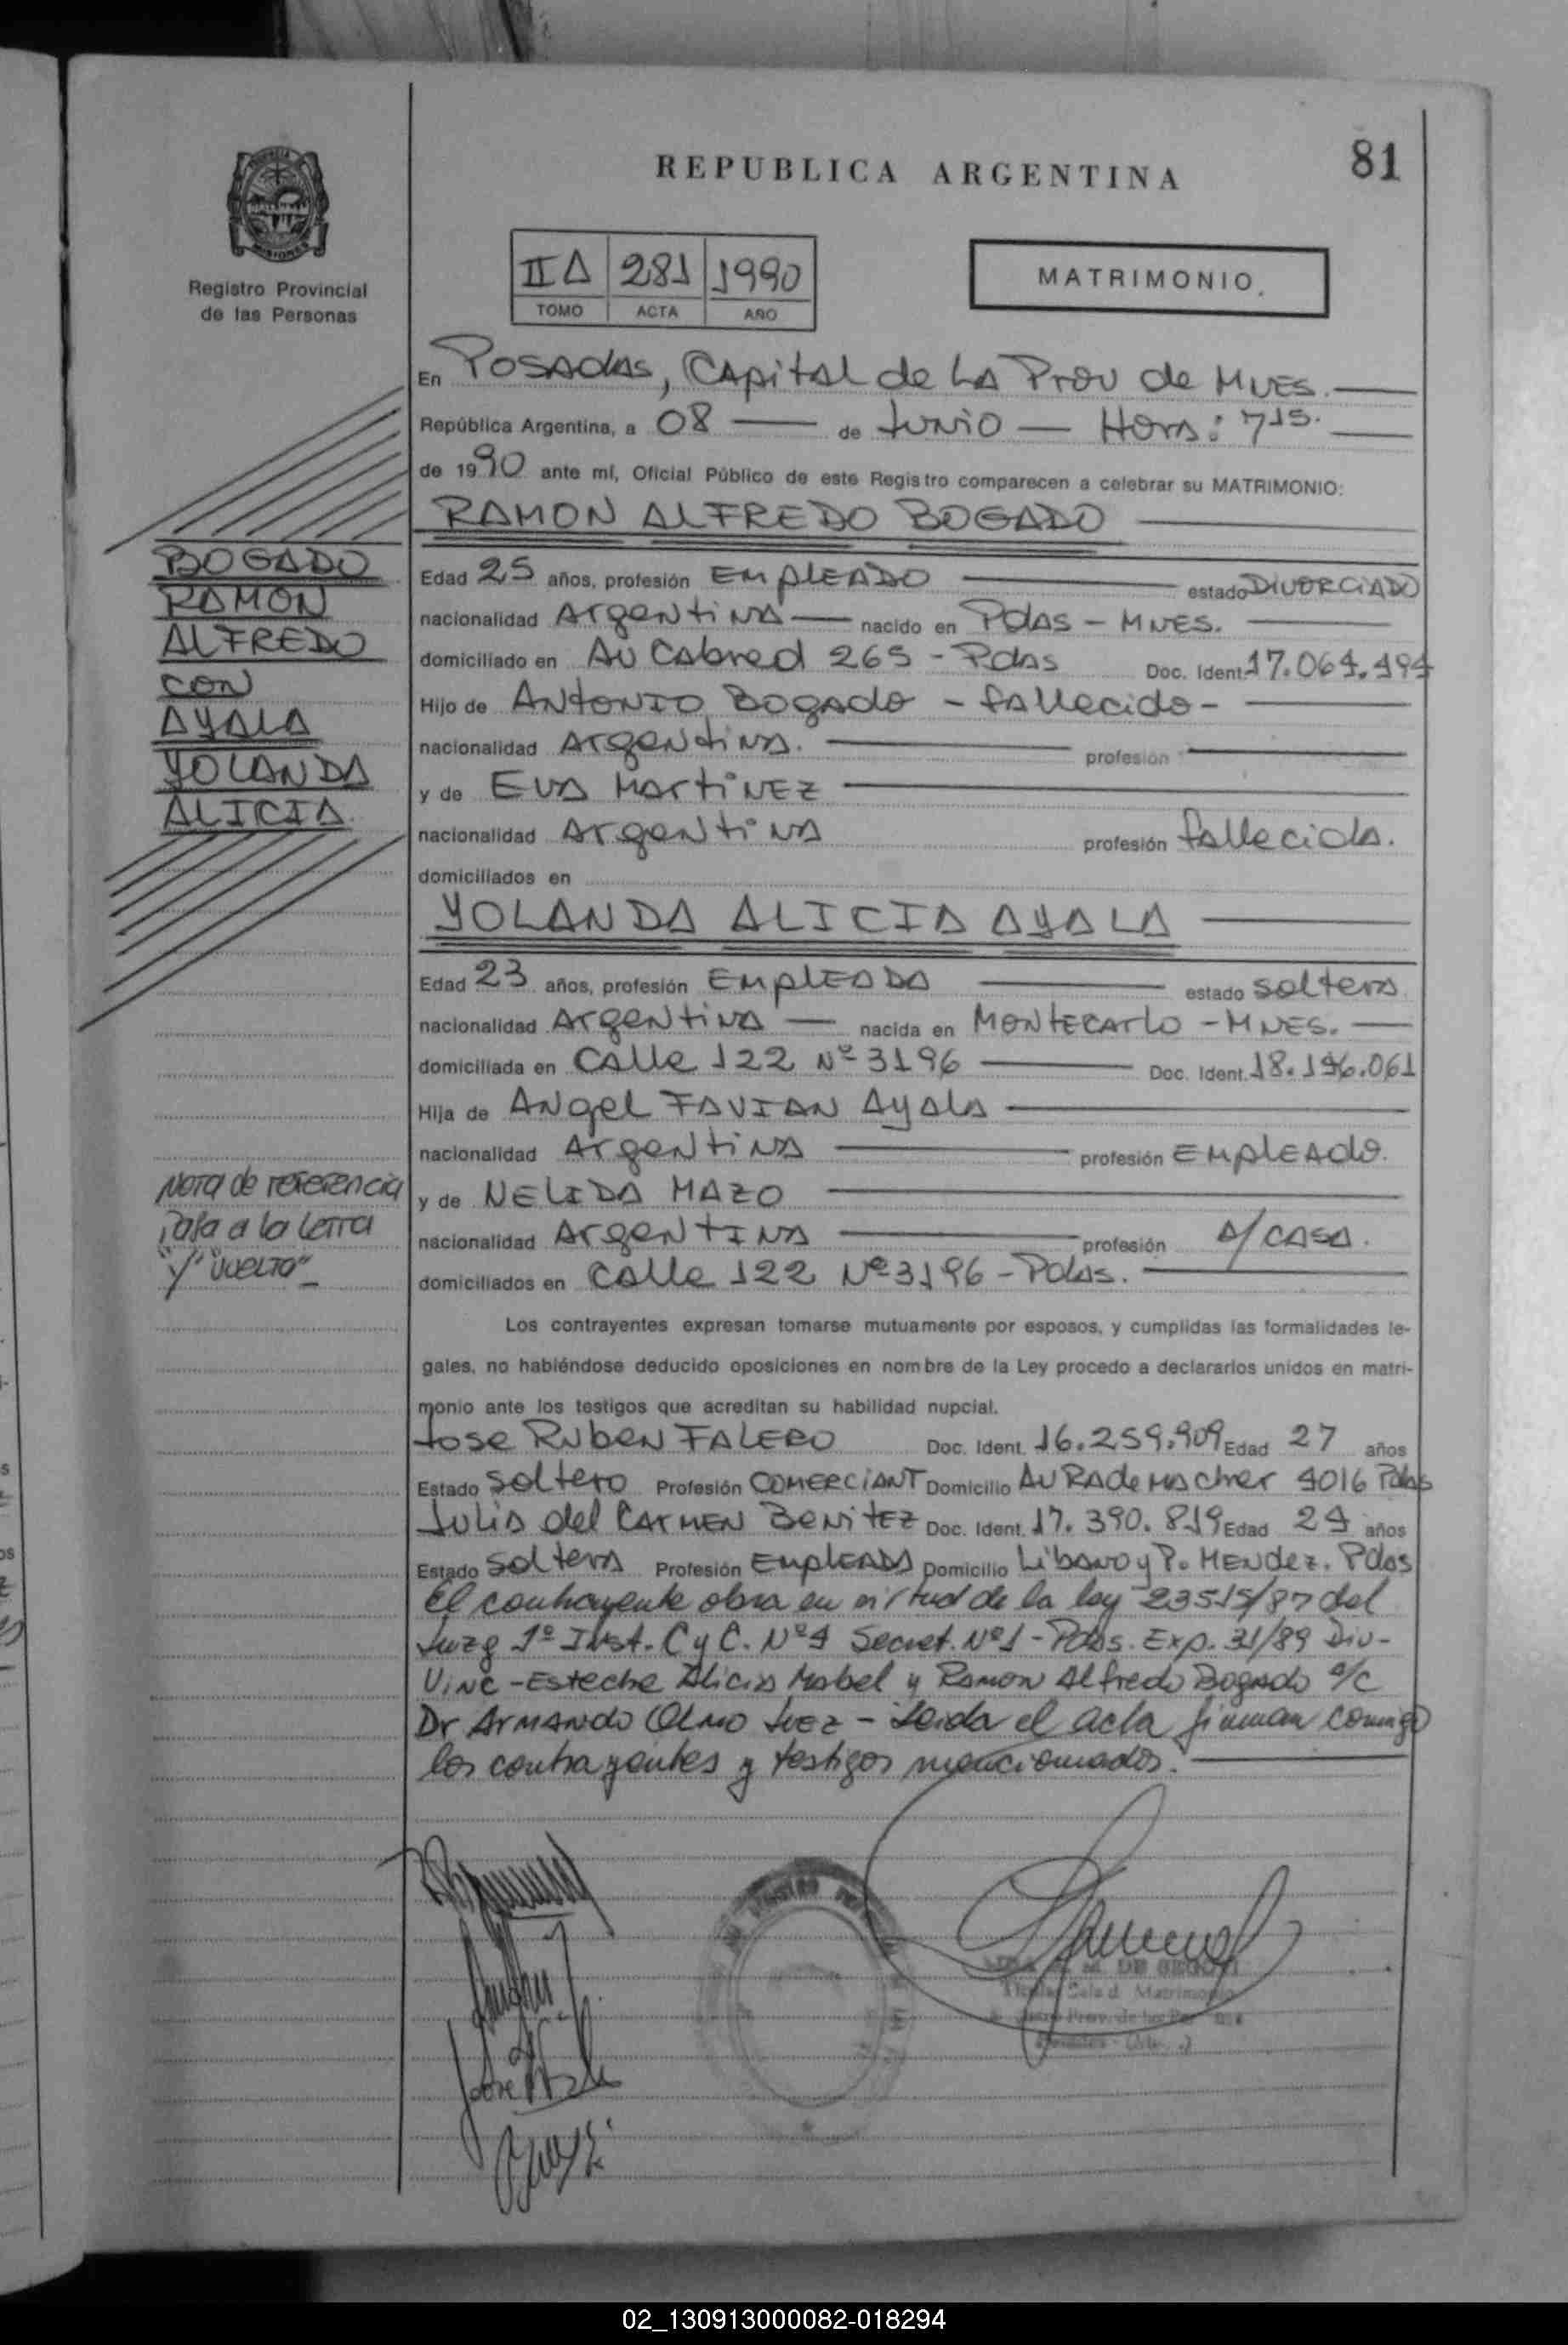 81
REPUBLICA ARGENTINA
Registro Provincial
de las Personas
II A 281 1990
TOMO ACTA AÑO
MATRIMONIO.
En Posadas, Capital de La Prov de Mnes.
República Argentina, a 08 de Junio Hora: 7 15.
de 1990 ante mí, Oficial Público de este Registro comparecen a celebrar su MATRIMONIO:
RAMON ALFREDO BOGADO
BOGADO
RAMON
ALFREDO
CON
AYALA
YOLANDA
ALICIA.
Edad 25 años, profesión EMPLEADO estado DIVORCIADO
nacionalidad Argentina nacido en Pdas - Mnes.
domiciliado en Av Cabred 265 - Pdas Doc. Ident. 17.064.494
Hijo de Antonio Bogado - fallecido -
nacionalidad Argentina. profesión
y de Eva Martinez
nacionalidad Argentina profesión fallecida.
domiciliados en
YOLANDA ALICIA AYALA
Edad 23 años, profesión EMPLEADA estado soltera
nacionalidad Argentina nacida en MONTECARLO - MNES.
domiciliada en Calle 122 Nº 3196 Doc. Ident. 18.196.061
Hija de Angel FAVIAN Ayala
nacionalidad Argentina profesión EMpleAdo.
y de NELIDA MAZO
nacionalidad Argentina profesión A/CASA.
domiciliados en Calle 122 Nº 3196 - Pdas.
Nota de referencia
pasa a la letra
"Y" vuelta"
Los contrayentes expresan tomarse mutuamente por esposos, y cumplidas las formalidades le-
gales, no habiéndose deducido oposiciones en nombre de la Ley procedo a declararlos unidos en matri-
monio ante los testigos que acreditan su habilidad nupcial.
Jose Ruben FALERO Doc. Ident. 16.259.909 Edad 27 años
Estado Soltero Profesión COMERCIANT Domicilio Av RAdemacher 4016 Pdas
Julia del CARMEN Benitez Doc. Ident. 17.390.819 Edad 24 años
Estado Soltera Profesión EmpleADA Domicilio Libano y P. Mendez. Pdas
El contrayente obra en virtud de la ley 23515/87 del
Juzg 1º Inst. C y C. Nº 4 Secret. Nº 1 - Pdas. Exp. 31/89 Div-
Vinc - Esteche Alicia Mabel y Ramon Alfredo Bogado a/c
Dr Armando Olmo Juez - Leida el acta firman conmigo
los contrayentes y testigos mencionados.
02_130913000082-018294